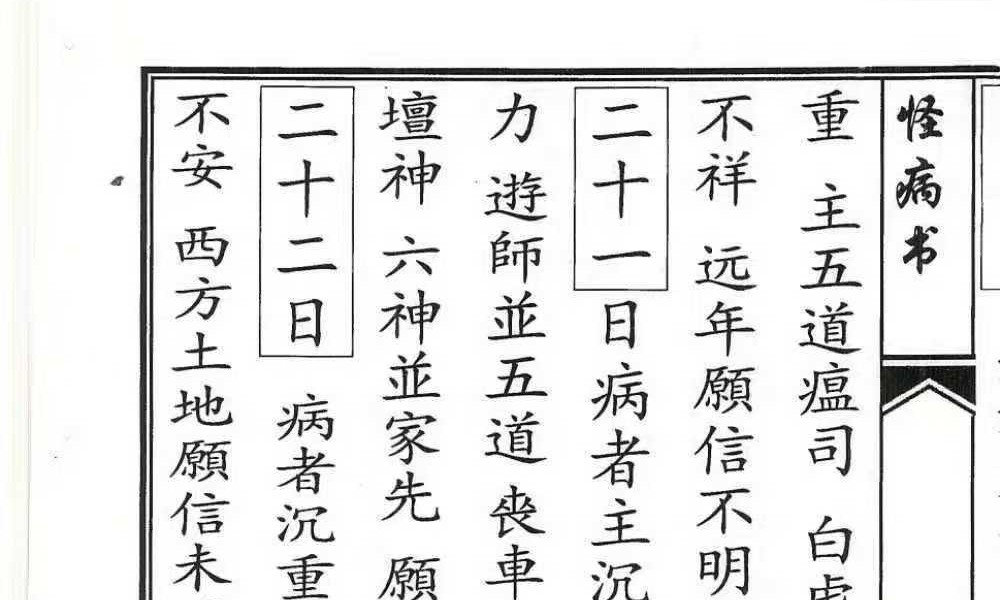 怪病书
重 主五道瘟司 白虎
不祥 远年願信不明
二十一日病者主沉
力 遊師並五道 丧車
壇神 六神並家先 願
二十二日 病者沉重
不安 西方土地願信未